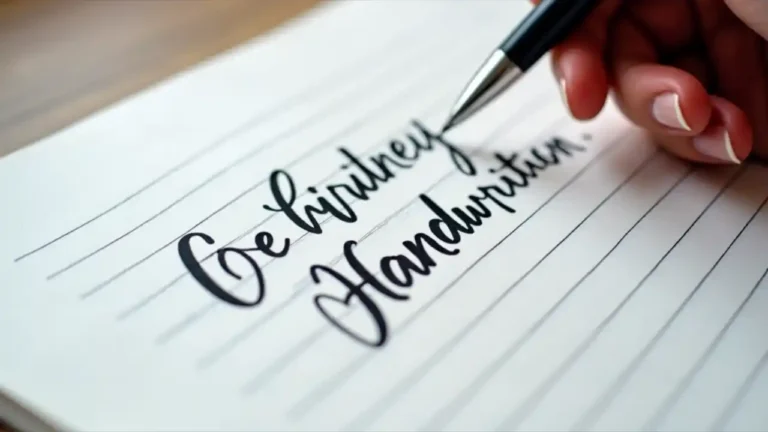 Ge hiritney
Handwrition.